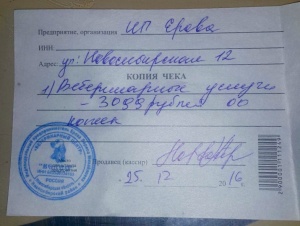 Предприятие, организация ИП Ерова
ИНН
Адрес ул: Новосибирская 12
КОПИЯ ЧЕКА
1) Ветеринарное услуги
- 3099 рублей 00
копеек
Продавец (кассир)
25. 12 2016 г.
РОССИЯ